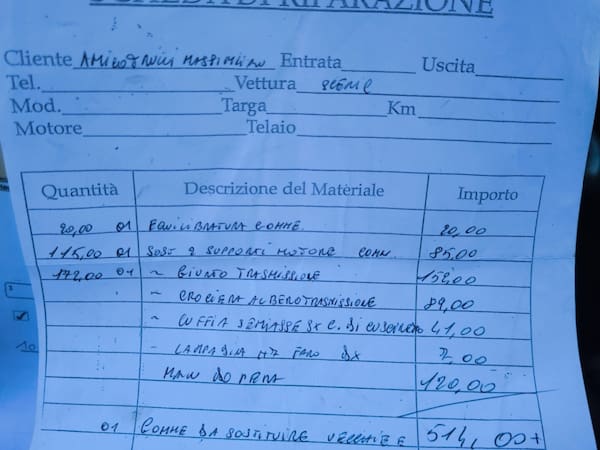 SCHEDA DI RIPARAZIONE
Cliente Entrata Uscita
Tel. Vettura
Mod. Targa Km
Motore Telaio
Quantità Descrizione del Materiale Importo
20,00 01 EQUILIBRATURA GOMME 20,00
115,00 01 SOST 2 SUPPORTI MOTORE COMN. 85,00
172,00 01 ~ GIUNTO TRASMISSIONE 152,00
~ CROCIERA ALBERO TRASMISSIONE 89,00
~ CUFFIA SEMIASSE SX C. DI CUSCINETTO 41,00
- LAMPADINA H7 FARO DX 7,00
MAN DO PERA 120,00
01 GOMME DA SOSTITUIRE VECCHIE E 514,00+